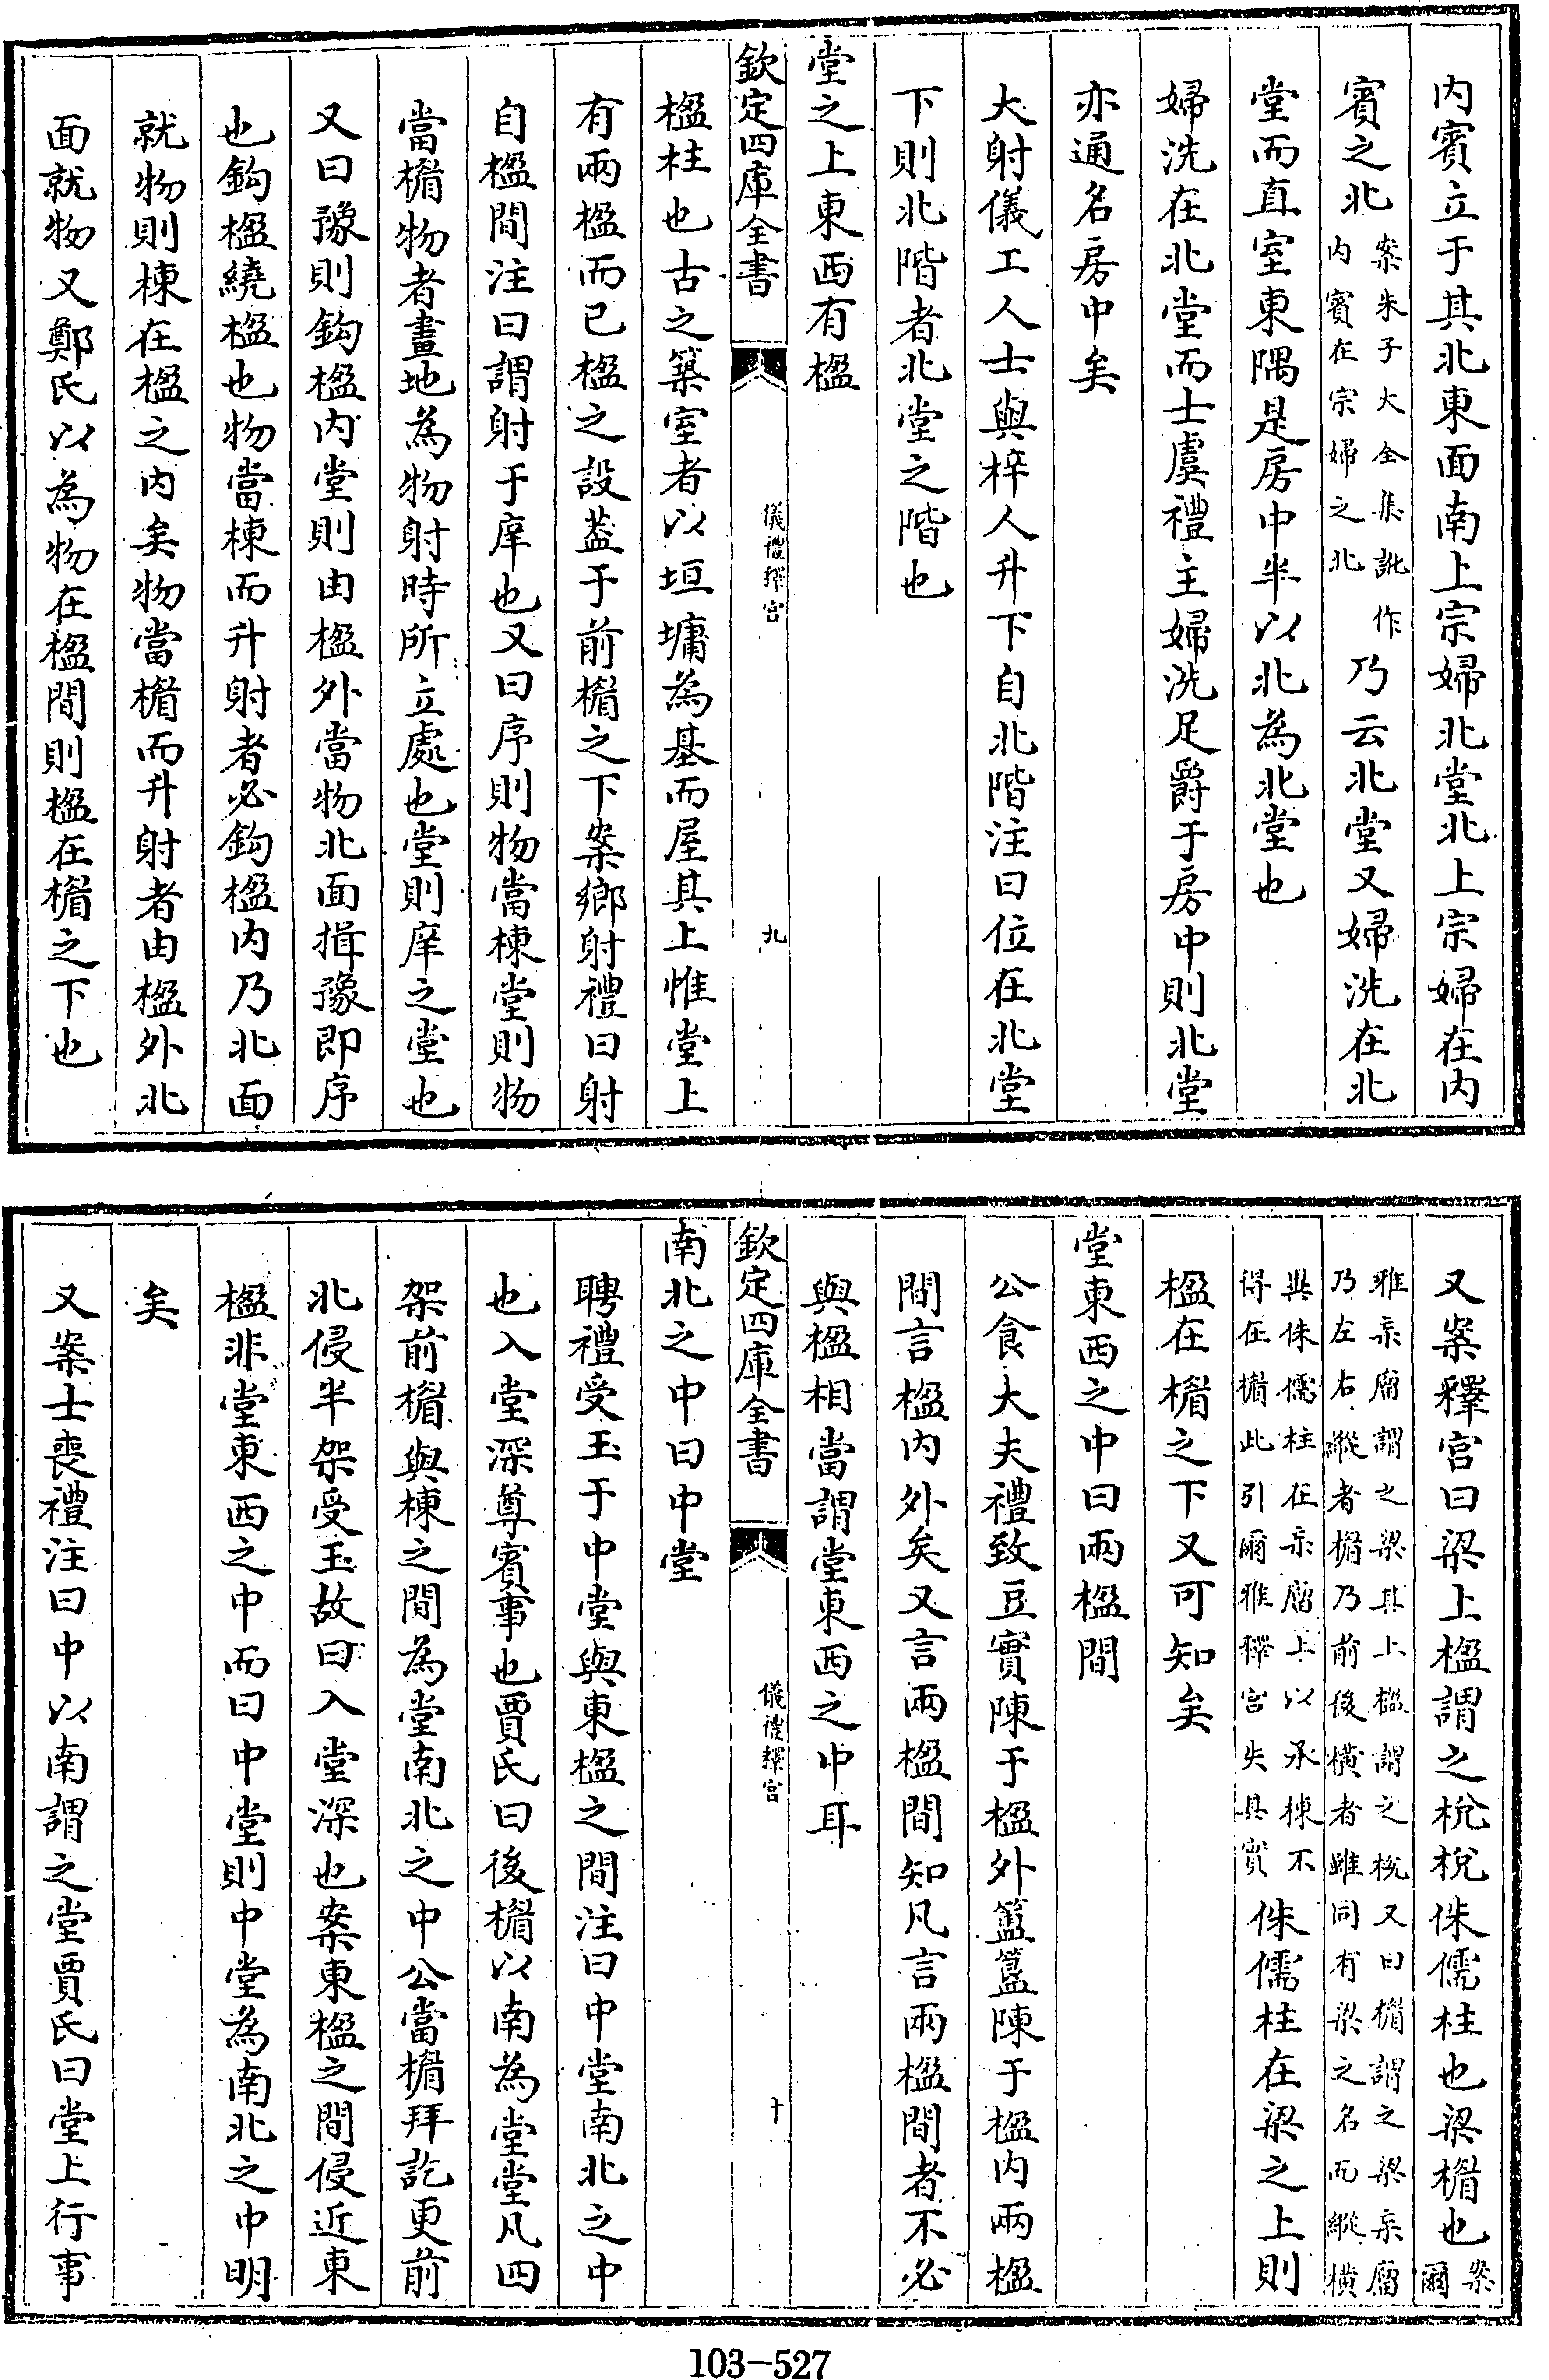 内賓立于其北東面南上宗婦北堂北上宗婦在内
賓之北案朱子大全集訛作内賓在宗婦之北乃云北堂又婦洗在北
堂而直室東隅是房中半以北為北堂也
婦洗在北堂而士虞禮主婦洗足爵于房中則北堂
亦通名房中矣
大射儀工人士與梓人升下自北階注曰位在北堂
下則北階者北堂之階也
堂之上東西有楹
欽定四庫全書
儀禮釋宫
九
楹柱也古之築室者以垣墉為基而屋其上惟堂上
有兩楹而已楹之設葢于前楣之下案鄉射禮曰射
自楹間注曰謂射于庠也又曰序則物當棟堂則物
當楣物者畫地為物射時所立處也堂則庠之堂也
又曰豫則鈎楹内堂則由楹外當物北面揖豫即序
也鈎楹繞楹也物當棟而升射者必鈎楹内乃北面
就物則棟在楹之内矣物當楣而升射者由楹外北
面就物又鄭氏以為物在楹間則楹在楣之下也
又案釋宫曰梁上楹謂之梲梲侏儒柱也梁楣也案爾
雅杗廇謂之梁其上楹謂之梲又曰楣謂之梁杗廇
乃左右縱者楣乃前後横者雖同有梁之名而縱横
異侏儒柱在杗廇上以承棟不
得在楣此引爾雅釋宫失其實侏儒柱在梁之上則
楹在楣之下又可知矣
堂東西之中曰兩楹間
公食大夫禮致豆實陳于楹外簠簋陳于楹内兩楹
間言楹内外矣又言兩楹間知凡言兩楹間者不必
與楹相當謂堂東西之中耳
欽定四庫全書
儀禮釋宫
十
南北之中曰中堂
聘禮受玉于中堂與東楹之間注曰中堂南北之中
也入堂深尊賓事也賈氏曰後楣以南為堂堂凡四
架前楣與棟之間為堂南北之中公當楣拜訖更前
北侵半架受玉故曰入堂深也案東楹之間侵近東
楹非堂東西之中而曰中堂則中堂為南北之中明
矣
又案士喪禮注曰中以南謂之堂賈氏曰堂上行事
103-527